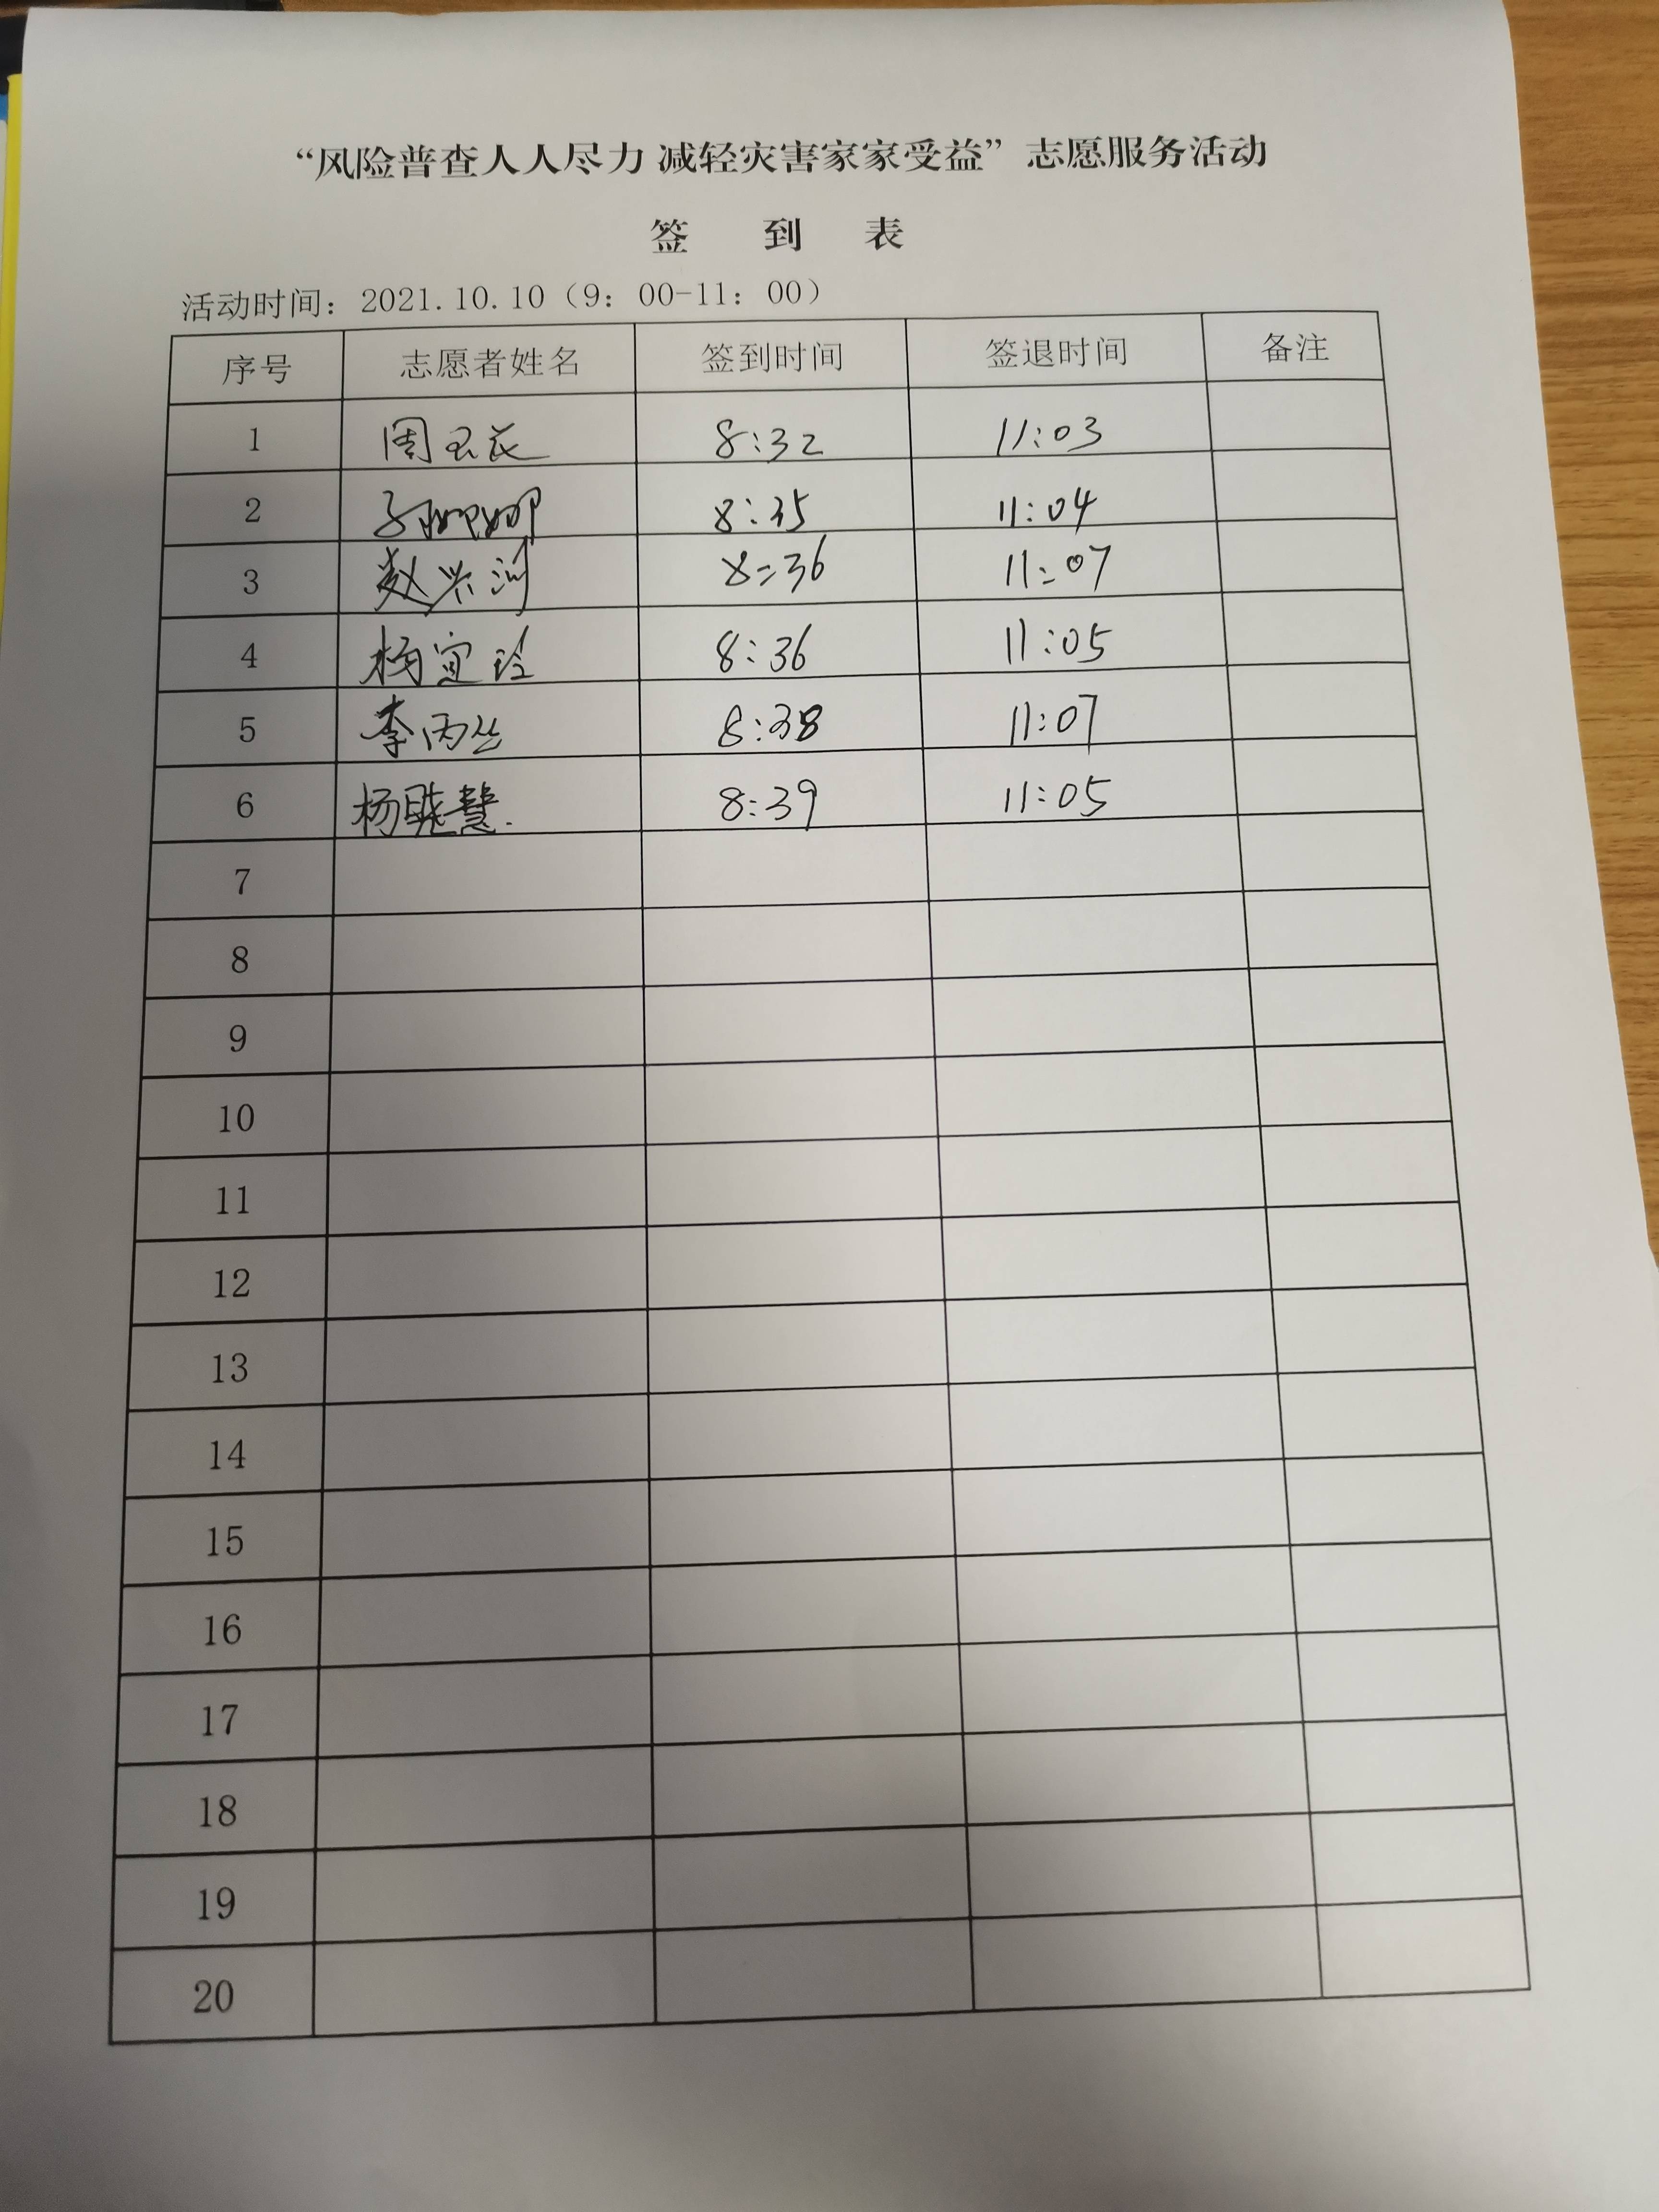 “风险普查人人尽力 减轻灾害家家受益”志愿服务活动
签 到 表
活动时间：2021.10.10（9：00-11：00）
序号 志愿者姓名 签到时间 签退时间 备注
1 周玉花 8:32 11:03
2 8:35 11:04
3 赵兴 8:36 11:07
4 杨宜玲 8:36 11:05
5 李丙兰 8:38 11:07
6 杨晓慧 8:39 11:05
7
8
9
10
11
12
13
14
15
16
17
18
19
20